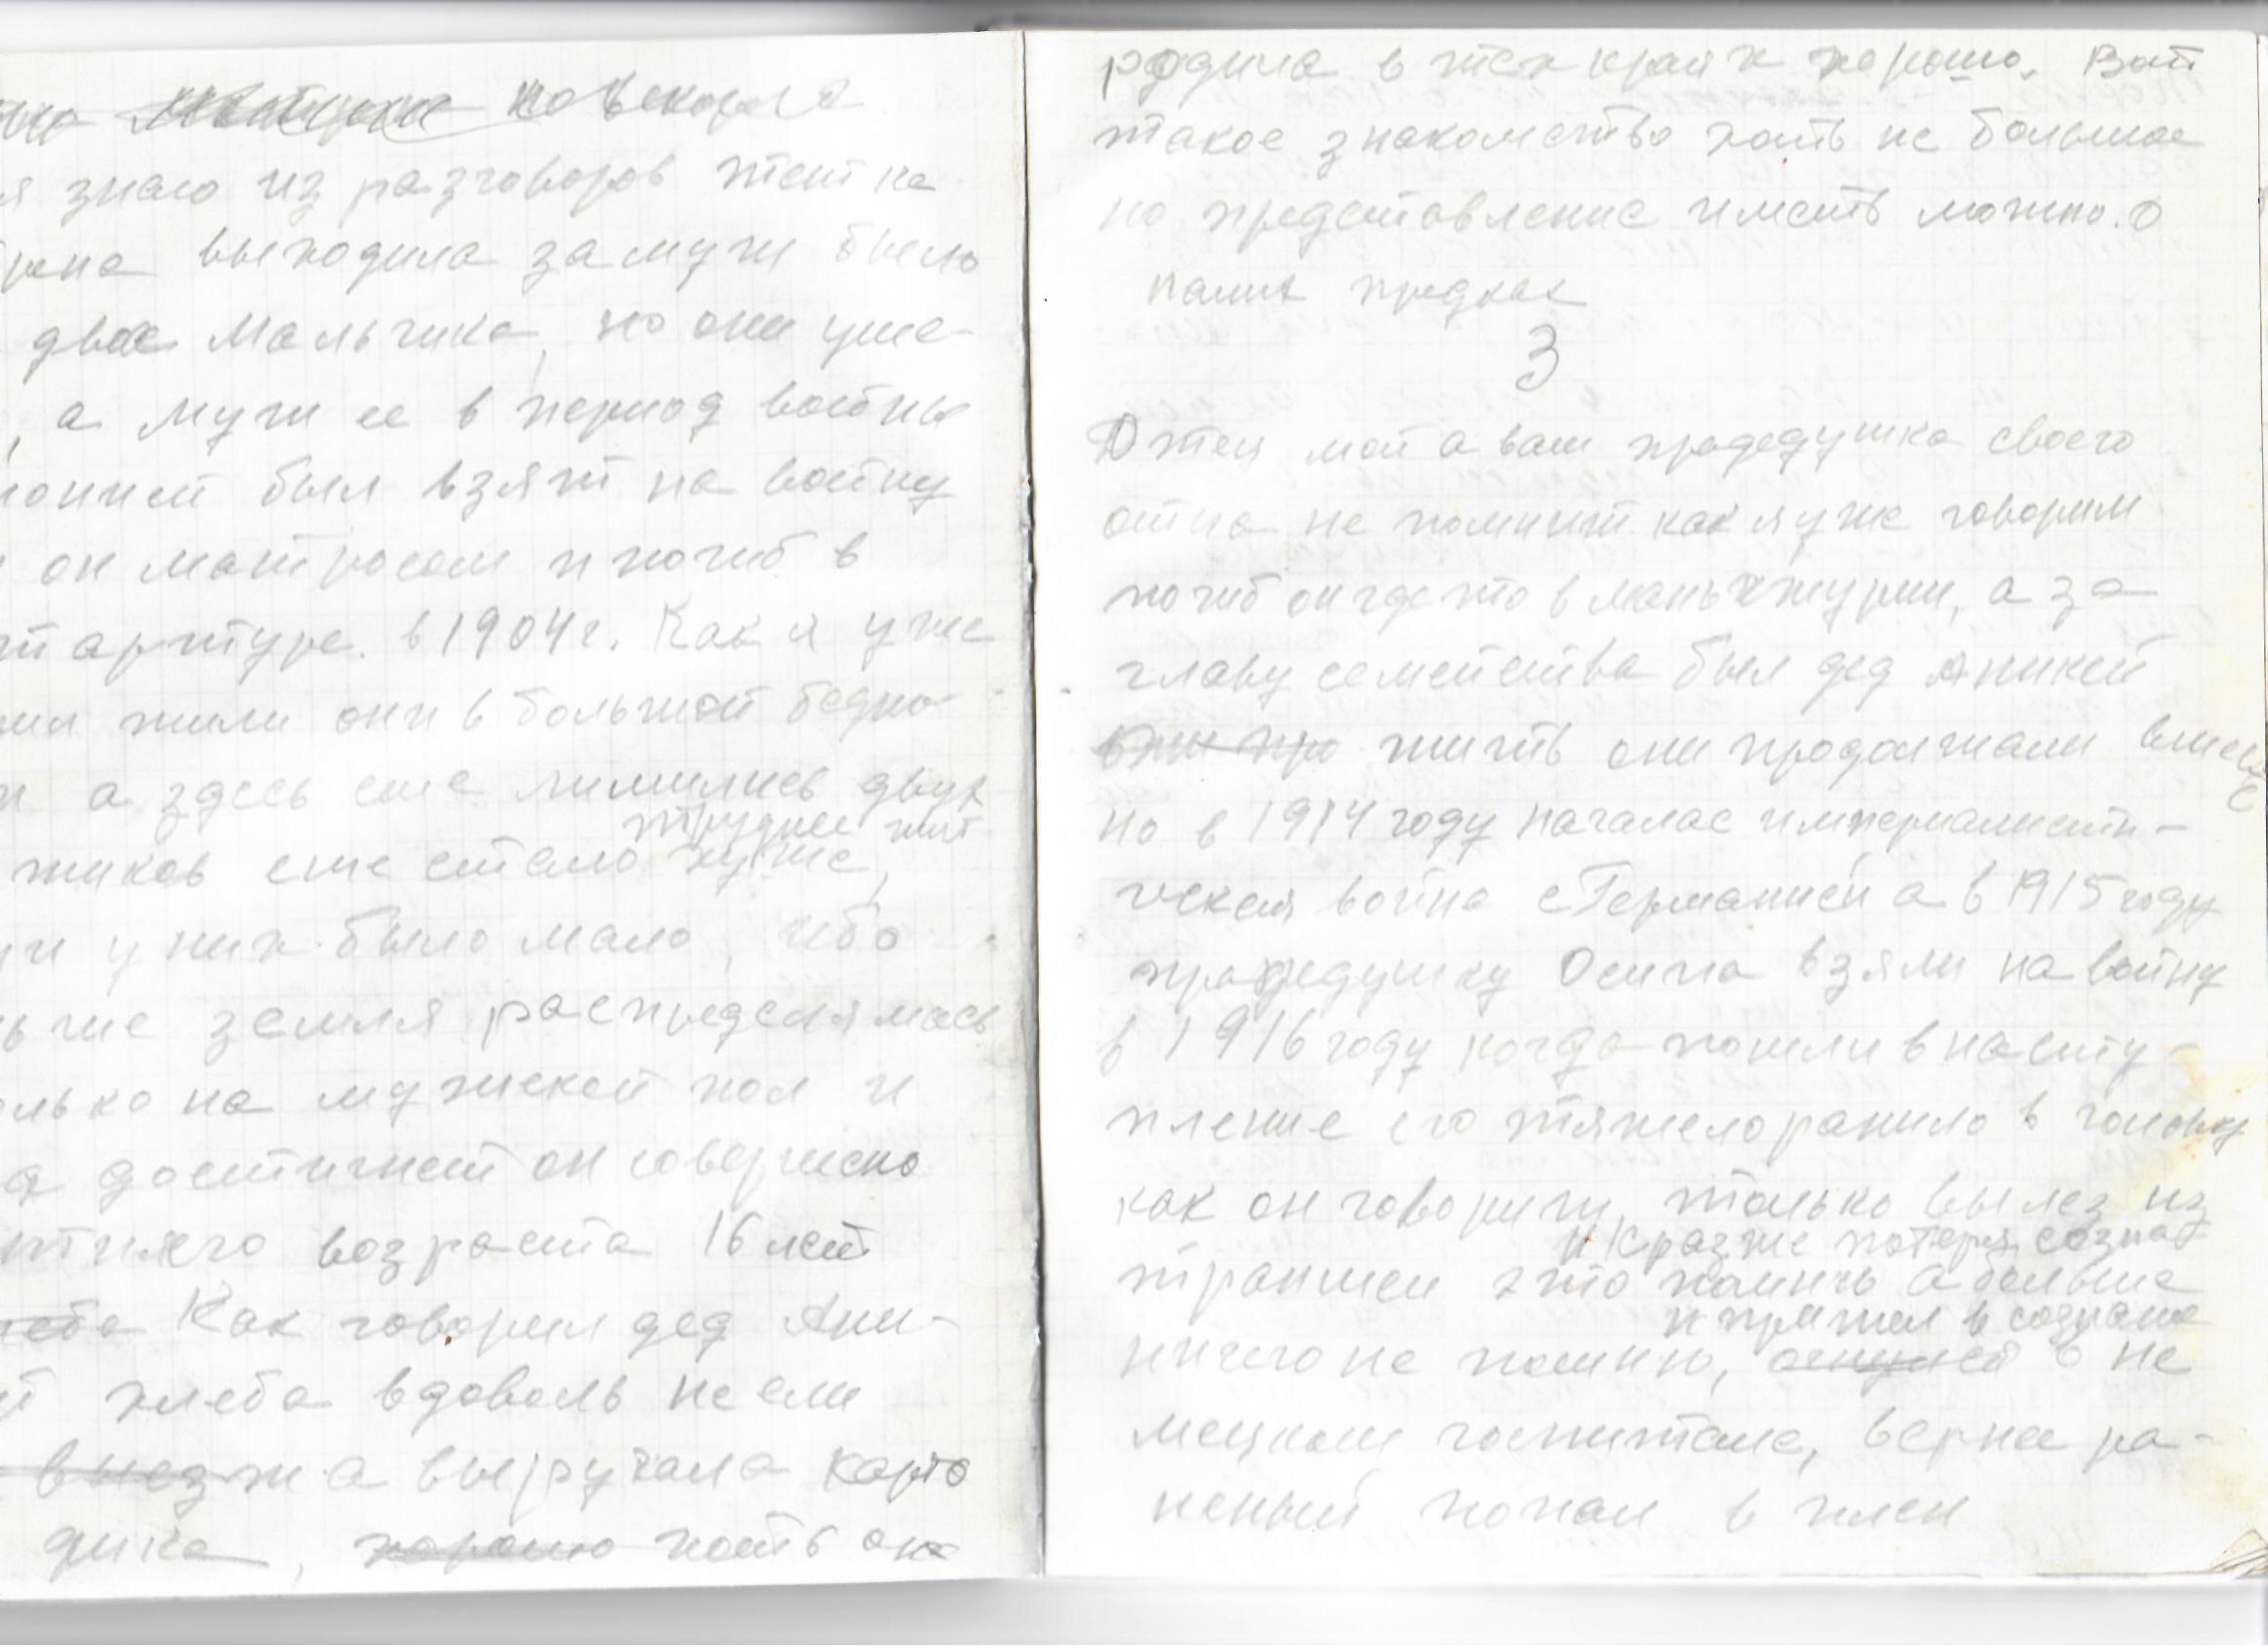 но Невскорле
я знаю из разговоров тетка
рена выходила замуж было
двое Мальчика, но они уме-
, а муж ее в период войны
понией был взят на войну
он матросом и погиб в
тартуре. в 1904 г. Как я уже
жили они в большой бедно-
и а здесь еше лишились двух
труднее жит
жиков еше стало хуже,
у них было мало, ибо
ьше земля распределялась
олько на мужской пол и
а достигнет он совершено
тняго возраста 16 лет
хлеба Как говорил дед Ани-
й хлеба вдоволь не ели
выезжа а выручала карто
дика, хорошо хоть он
родила в тех краях хорошо. Вот
такое знакомство хоть не большое
но представление иметь можно. о
наших предках
3
Отец мой а ваш прадедушка своего
отца не помнит как я уже говорил
погиб он где то в маньчжурии, а за
главу семейства был дед Аникей
они про жить они продолжали вместе
но в 1914 году началас империалисти-
ческая война с Германией а в 1915 году
прадедушку Осипа взяли на войну
в 1916 году когда пошли в насту-
пление его тяжело ранило в голову
как он говорит, только вылез из
и сразже потеря созна
траншеи это помню а больше
и пришел в сознание
ничего не помню, очнулся в не
мецком госпитале, вернее ра-
неный попал в плен